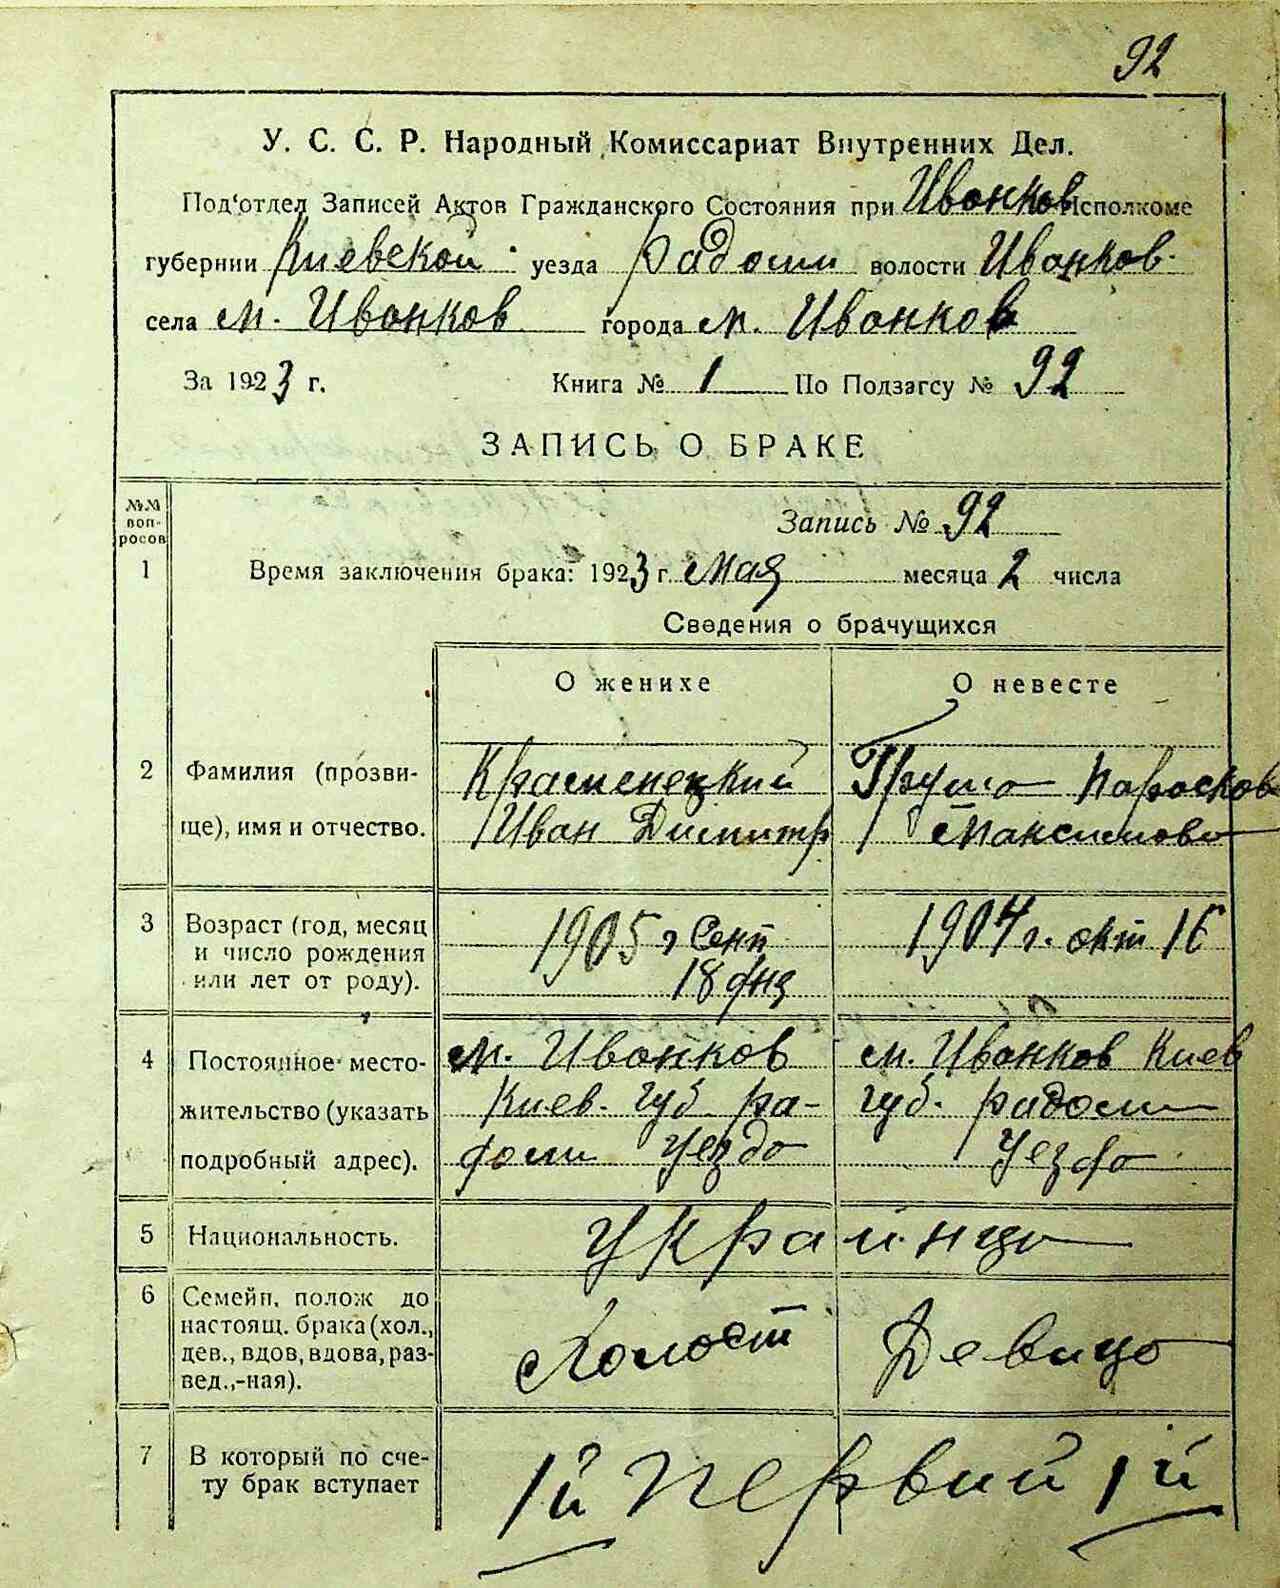 92
У. С. С. Р. Народный Комиссариат Внутренних Дел.
Под‘отдел Записей Актов Гражданского Состояния при Иванков Исполкоме
губернии Киевской уезда Радом волости Иванков.
села м. Иванков города м. Иванков
За 1923 г. Книга № 1 По Подзагсу № 92
ЗАПИСЬ О БРАКЕ
№№ воп-росов
Запись № 92
1 Время заключения брака: 1923 г. мая месяца 2 числа
Сведения о брачущихся
О женихе О невесте
2 Фамилия (прозви- Кременецкий Груша Парасков
ще), имя и отчество. Иван Димитр Максимова
3 Возраст (год, месяц 1905 г Сент 1904 г. окт 16
и число рождения 18 дня
или лет от роду).
4 Постоянное место- м. Иванков м. Иванков Киев
жительство (указать Киев. губ. Ра- губ. Радом
подробный адрес). дом уезда уезда
5 Национальность. Украинцы
6 Семейн. полож до
настоящ. брака (хол., Холост Девица
дев., вдов, вдова, раз-
вед.,-ная).
7 В который по сче- 1й Первий 1й
ту брак вступает